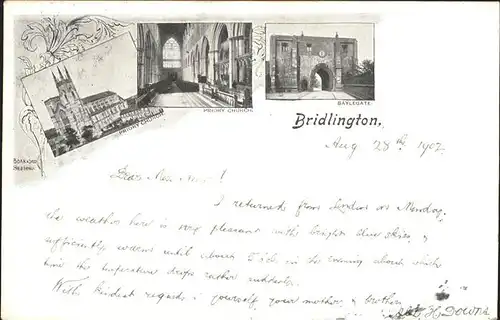 PRIORY CHURCH
PRIORY CHURCH
BAYLEGATE
Bridlington.
Aug 28th 1902
Dear
I returned from London on Monday.
the weather here is very pleasant with bright blue skies, &
sufficiently warm until about 5 o'c. in the evening about which
time the temperature drops rather suddenly.
With kindest regards to yourself your mother & brother
H. Downs